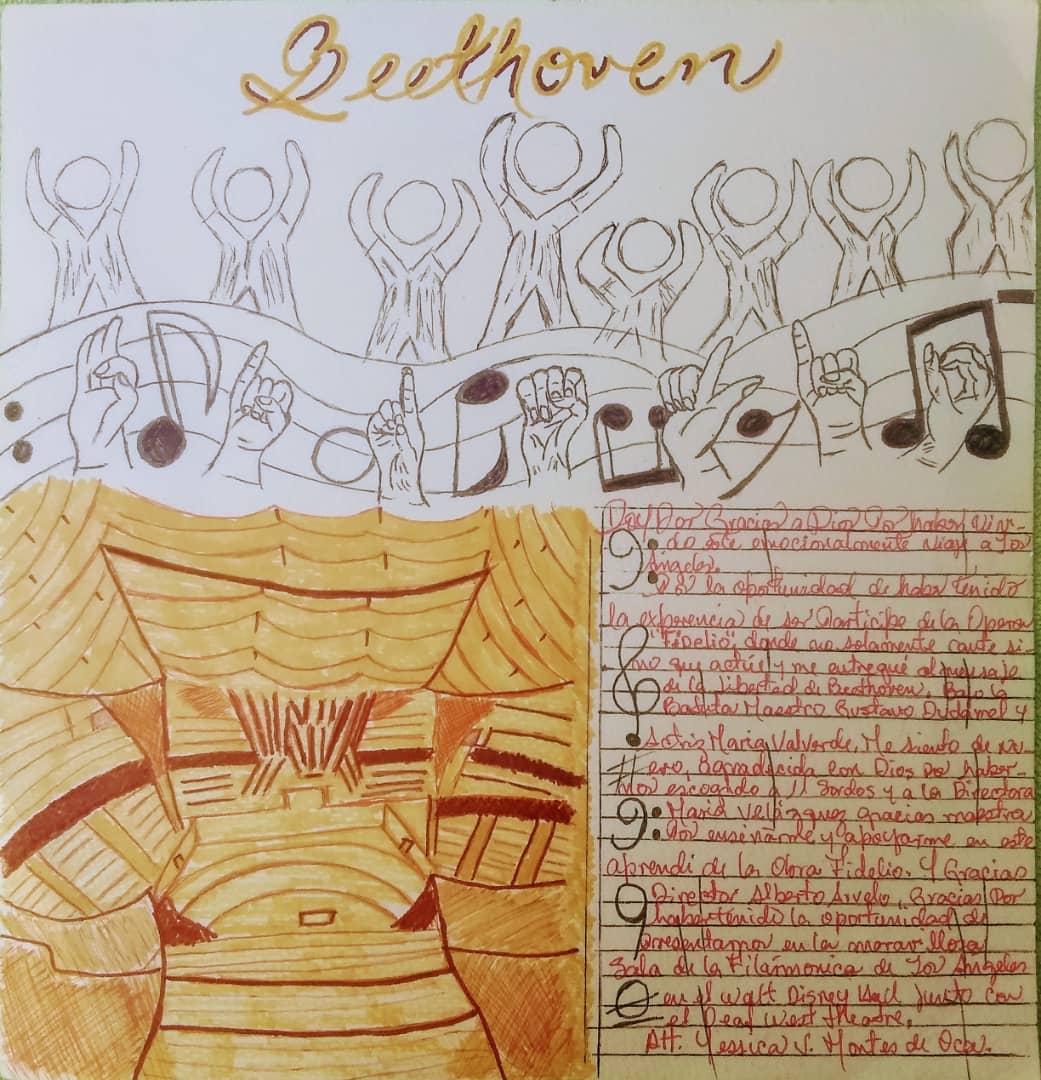 Beethoven
Doy Por Gracias a Dios Por haber vivi-
do este emocionalmente viaje a Los
Ángeles.
la oportunidad de haber tenido
la experencia de ser Participe de la Opera
"Fidelio" donde no solamente canté si-
no que actúe y me entregué al mensaje
de la libertad de Beethoven. Bajo la
Batuta Maestro Gustavo Dudamel y
Maria Valverde. Me siento de nu-
evo, agradecida con Dios por haber-
nos escogido 11 Sordos y a la Directora
María Velázquez gracias maestra
Por enseñarme y apoyarme en este
aprendi de la Obra Fidelio. Y Gracias
Director Alberto Arvelo, Gracias Por
haber tenido la oportunidad de
presentarnos en la
Sala de la Filarmonica de Los Angeles
en el Walt Disney Hall junto con
el Deaf West theatre.
Att. Yessica V. Montes de Oca.